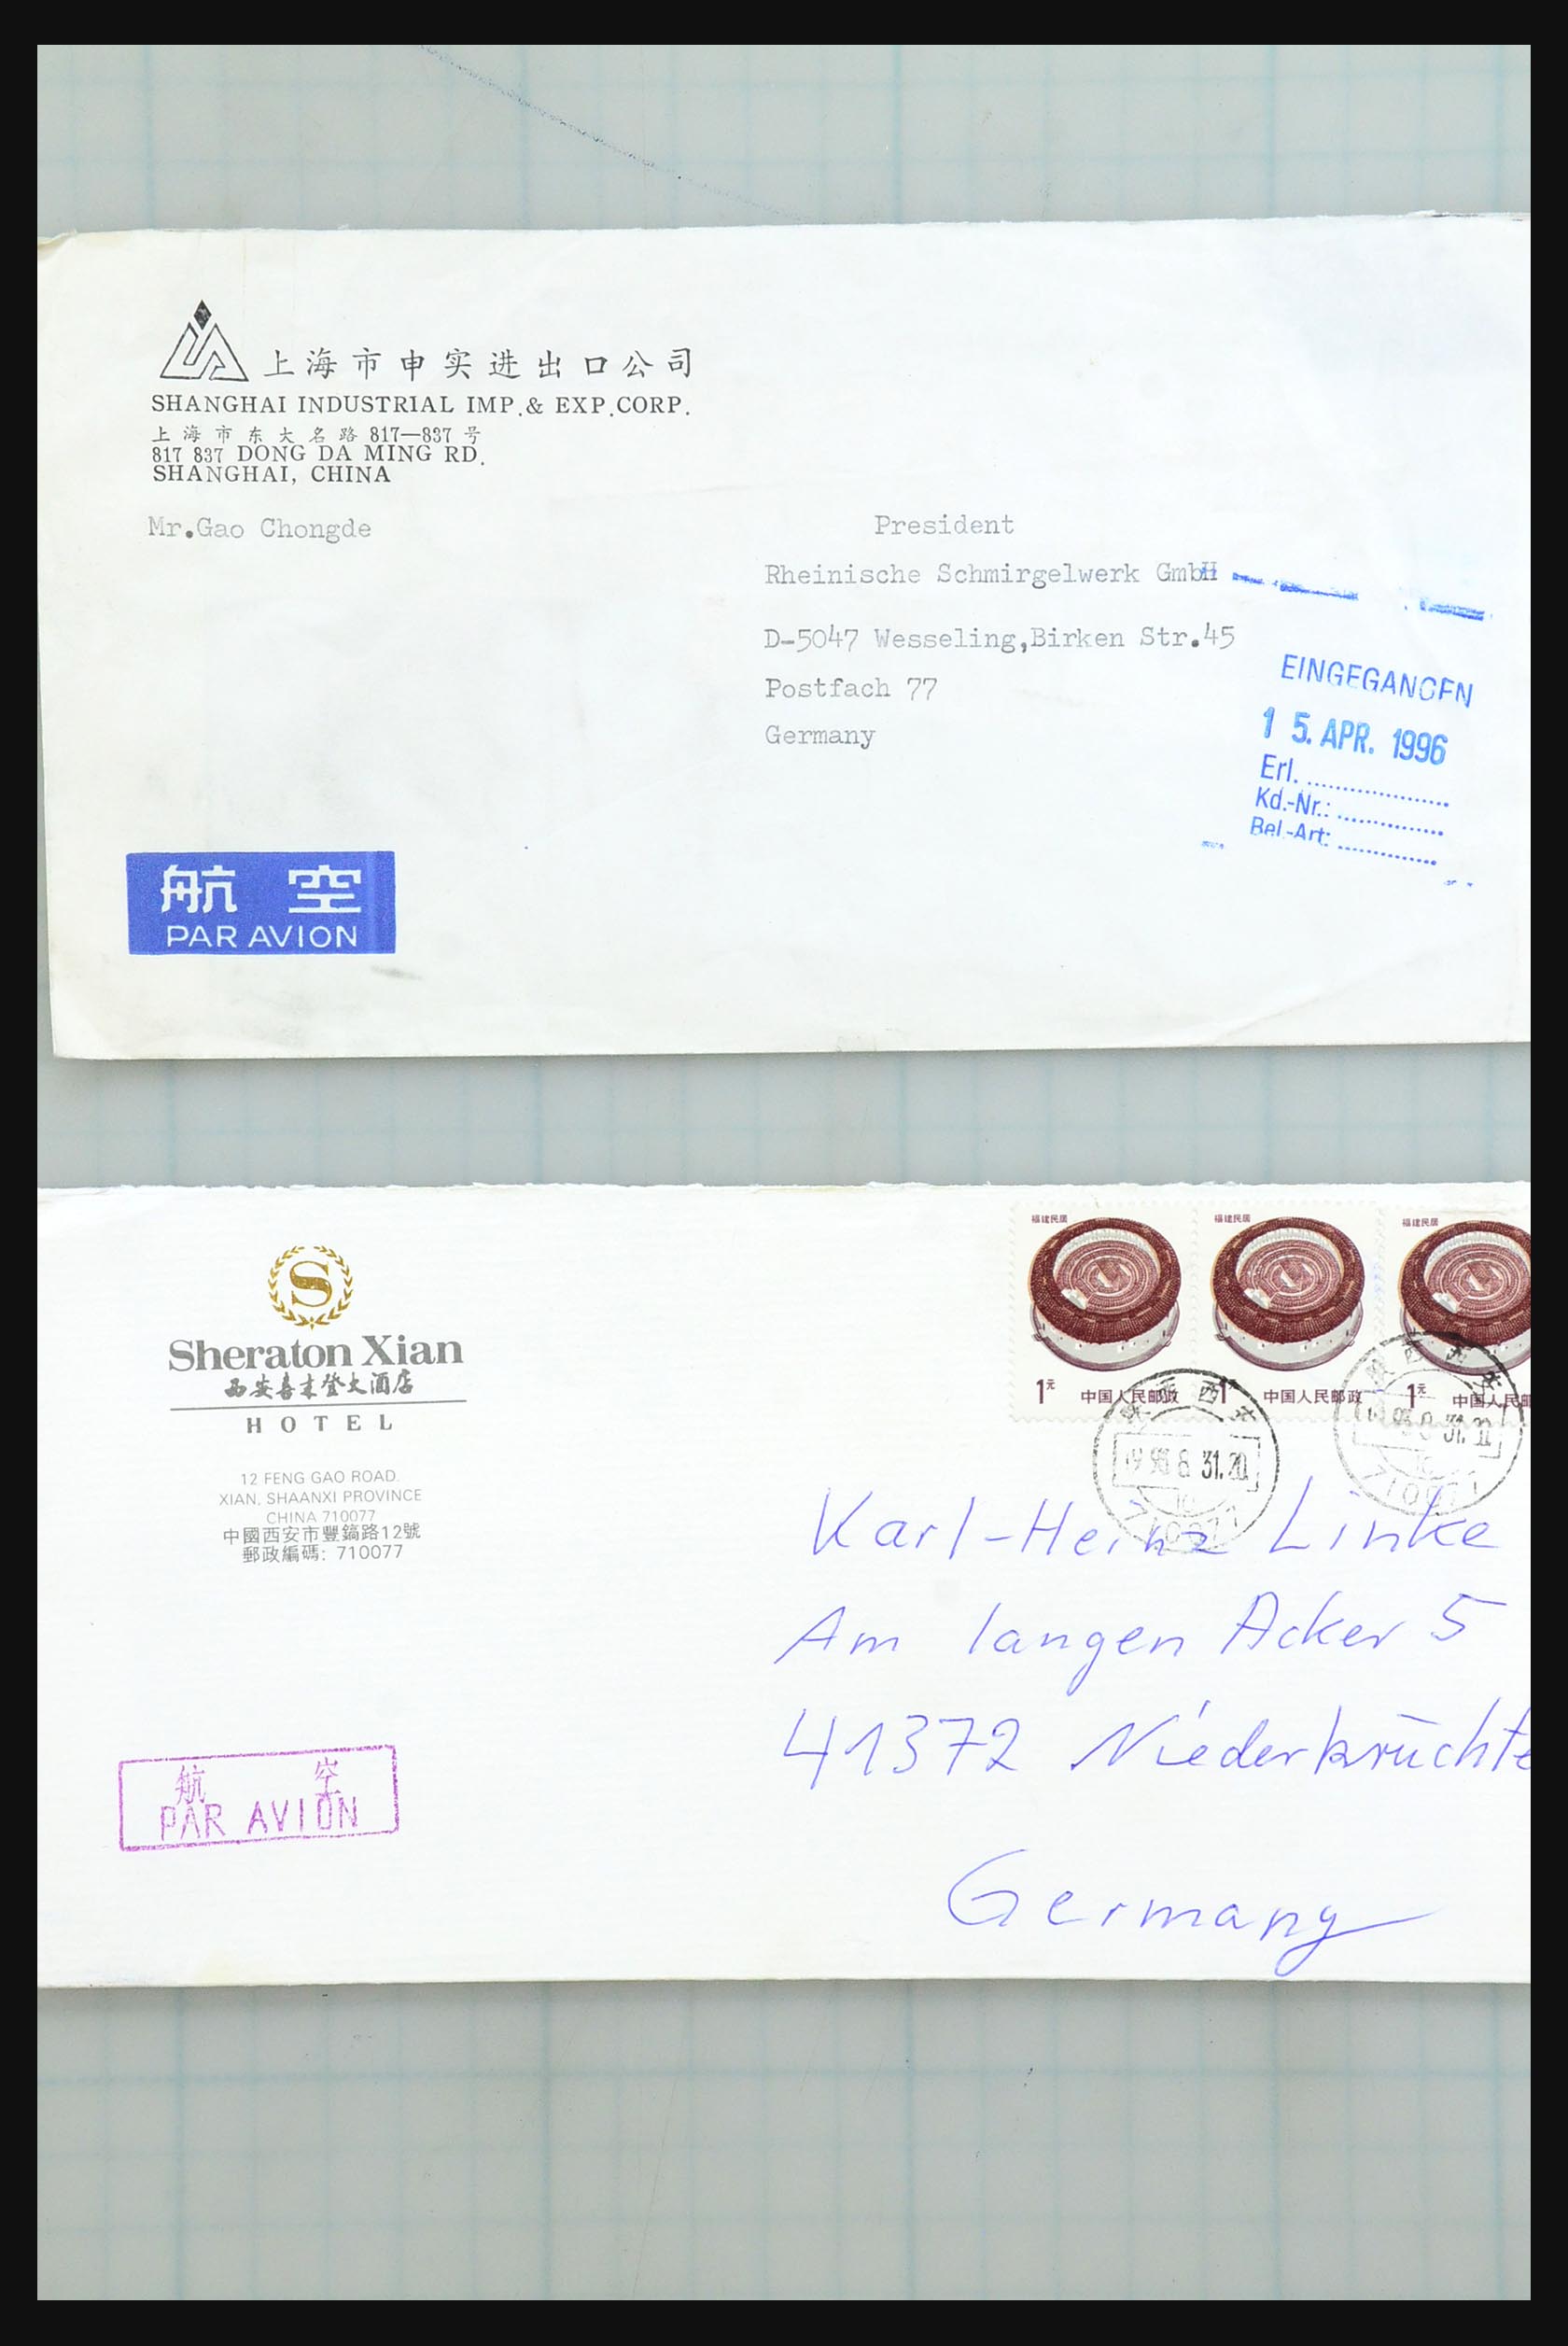 上海市申实进出口公司
SHANGHAI INDUSTRIAL IMP.& EXP.CORP.
上海市东大名路 817—837 号
817 837 DONG DA MING RD.
SHANGHAI, CHINA
Mr.Gao Chongde
President
Rheinische Schmirgelwerk GmbH
D-5047 Wesseling,Birken Str.45
Postfach 77
Germany
EINGEGANGEN
15. APR. 1996
Erl.
Kd.-Nr.:
Bel.-Art:
航 空
PAR AVION
福建民居 福建民居 福建民居
1元 中国人民邮政 1元 中国人民邮政 1元 中国人民邮
S
Sheraton Xian
西安喜来登大酒店
HOTEL
12 FENG GAO ROAD.
XIAN, SHAANXI PROVINCE
CHINA 710077
中國西安市豐鎬路12號
郵政編碼: 710077
8 31.20
710077
31.
710077
Karl-Heinz Linke
Am langen Acker 5
41372 Niederkrüchte
Germany
航 空
PAR AVION